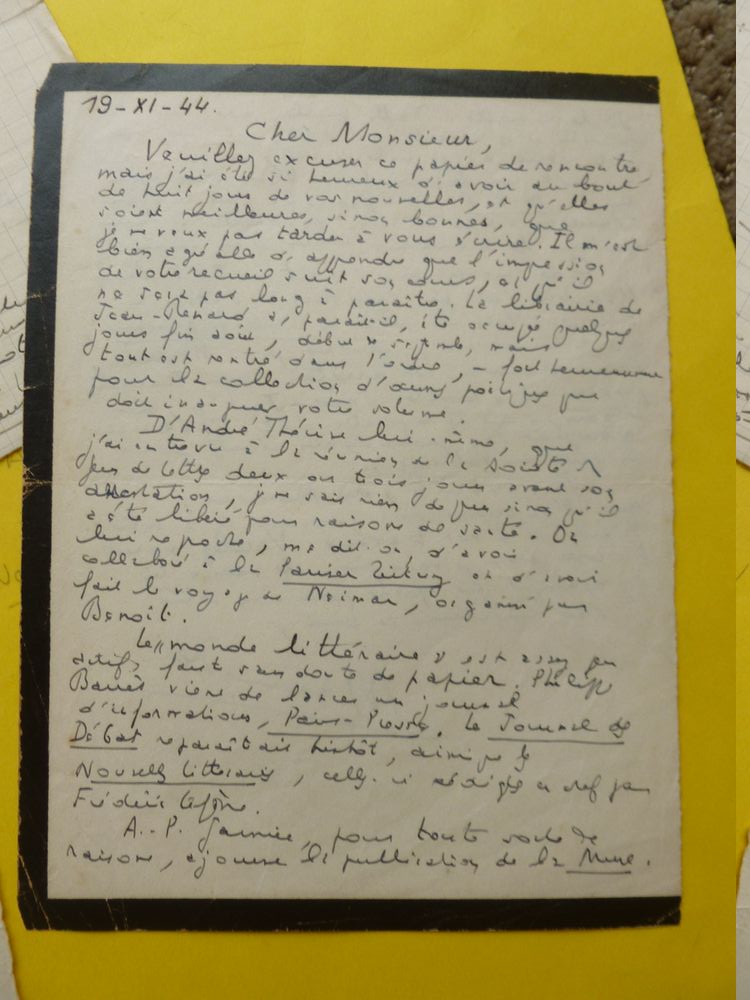 19-XI-44.
Cher Monsieur,
Veuillez excuser ce papier de rencontre
mais j'ai été si heureux d'avoir au bout
de huit jours de vos nouvelles, et qu'elles
soient meilleures, sinon bonnes, que
je ne veux pas tarder à vous écrire. Il m'est
bien agréable d'apprendre que l'impression
de votre recueil suit son cours, et qu'il
ne sera pas long à paraître. La librairie de
Jean-Renard a, paraît-il, été occupée quelques
jours fin août, début de septembre, mais
tout est rentré dans l'ordre, - fort heureusement
pour la collection d'œuvres poétiques que
doit inaugurer votre volume.
D'André Thérive lui-même, que
j'ai entrevu à la réunion de la Société des
Gens de Lettres deux ou trois jours avant son
arrestation, je ne sais rien de plus sinon qu'il
a été libéré pour raisons de santé. On
lui reproche, me dit-on, d'avoir
collaboré à la Pariser Zeitung et d'avoir
fait le voyage de Weimar, organisé par
Benoît.
Le monde littéraire est assez peu
actif, faute sans doute de papier. Philippe
Barrès vient de lancer un journal
d'informations, Paris-Presse. Le Journal des
Débats reparaîtrait bientôt, ainsi que les
Nouvelles littéraires, celles-ci rédigées en chef par
Frédéric Lefèvre.
A.-P. Garnier, pour toute sorte de
raisons, ajourne la publication de la Muse.